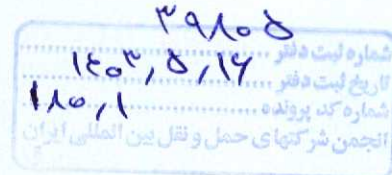 شماره ثبت دفتر ۳۹۸۰۵
تاریخ ثبت دفتر ۱۴۰۳,۵,۱۶
شماره کد پرونده ۱۸۰,۱
انجمن شرکتهای حمل و نقل بین المللی ایران